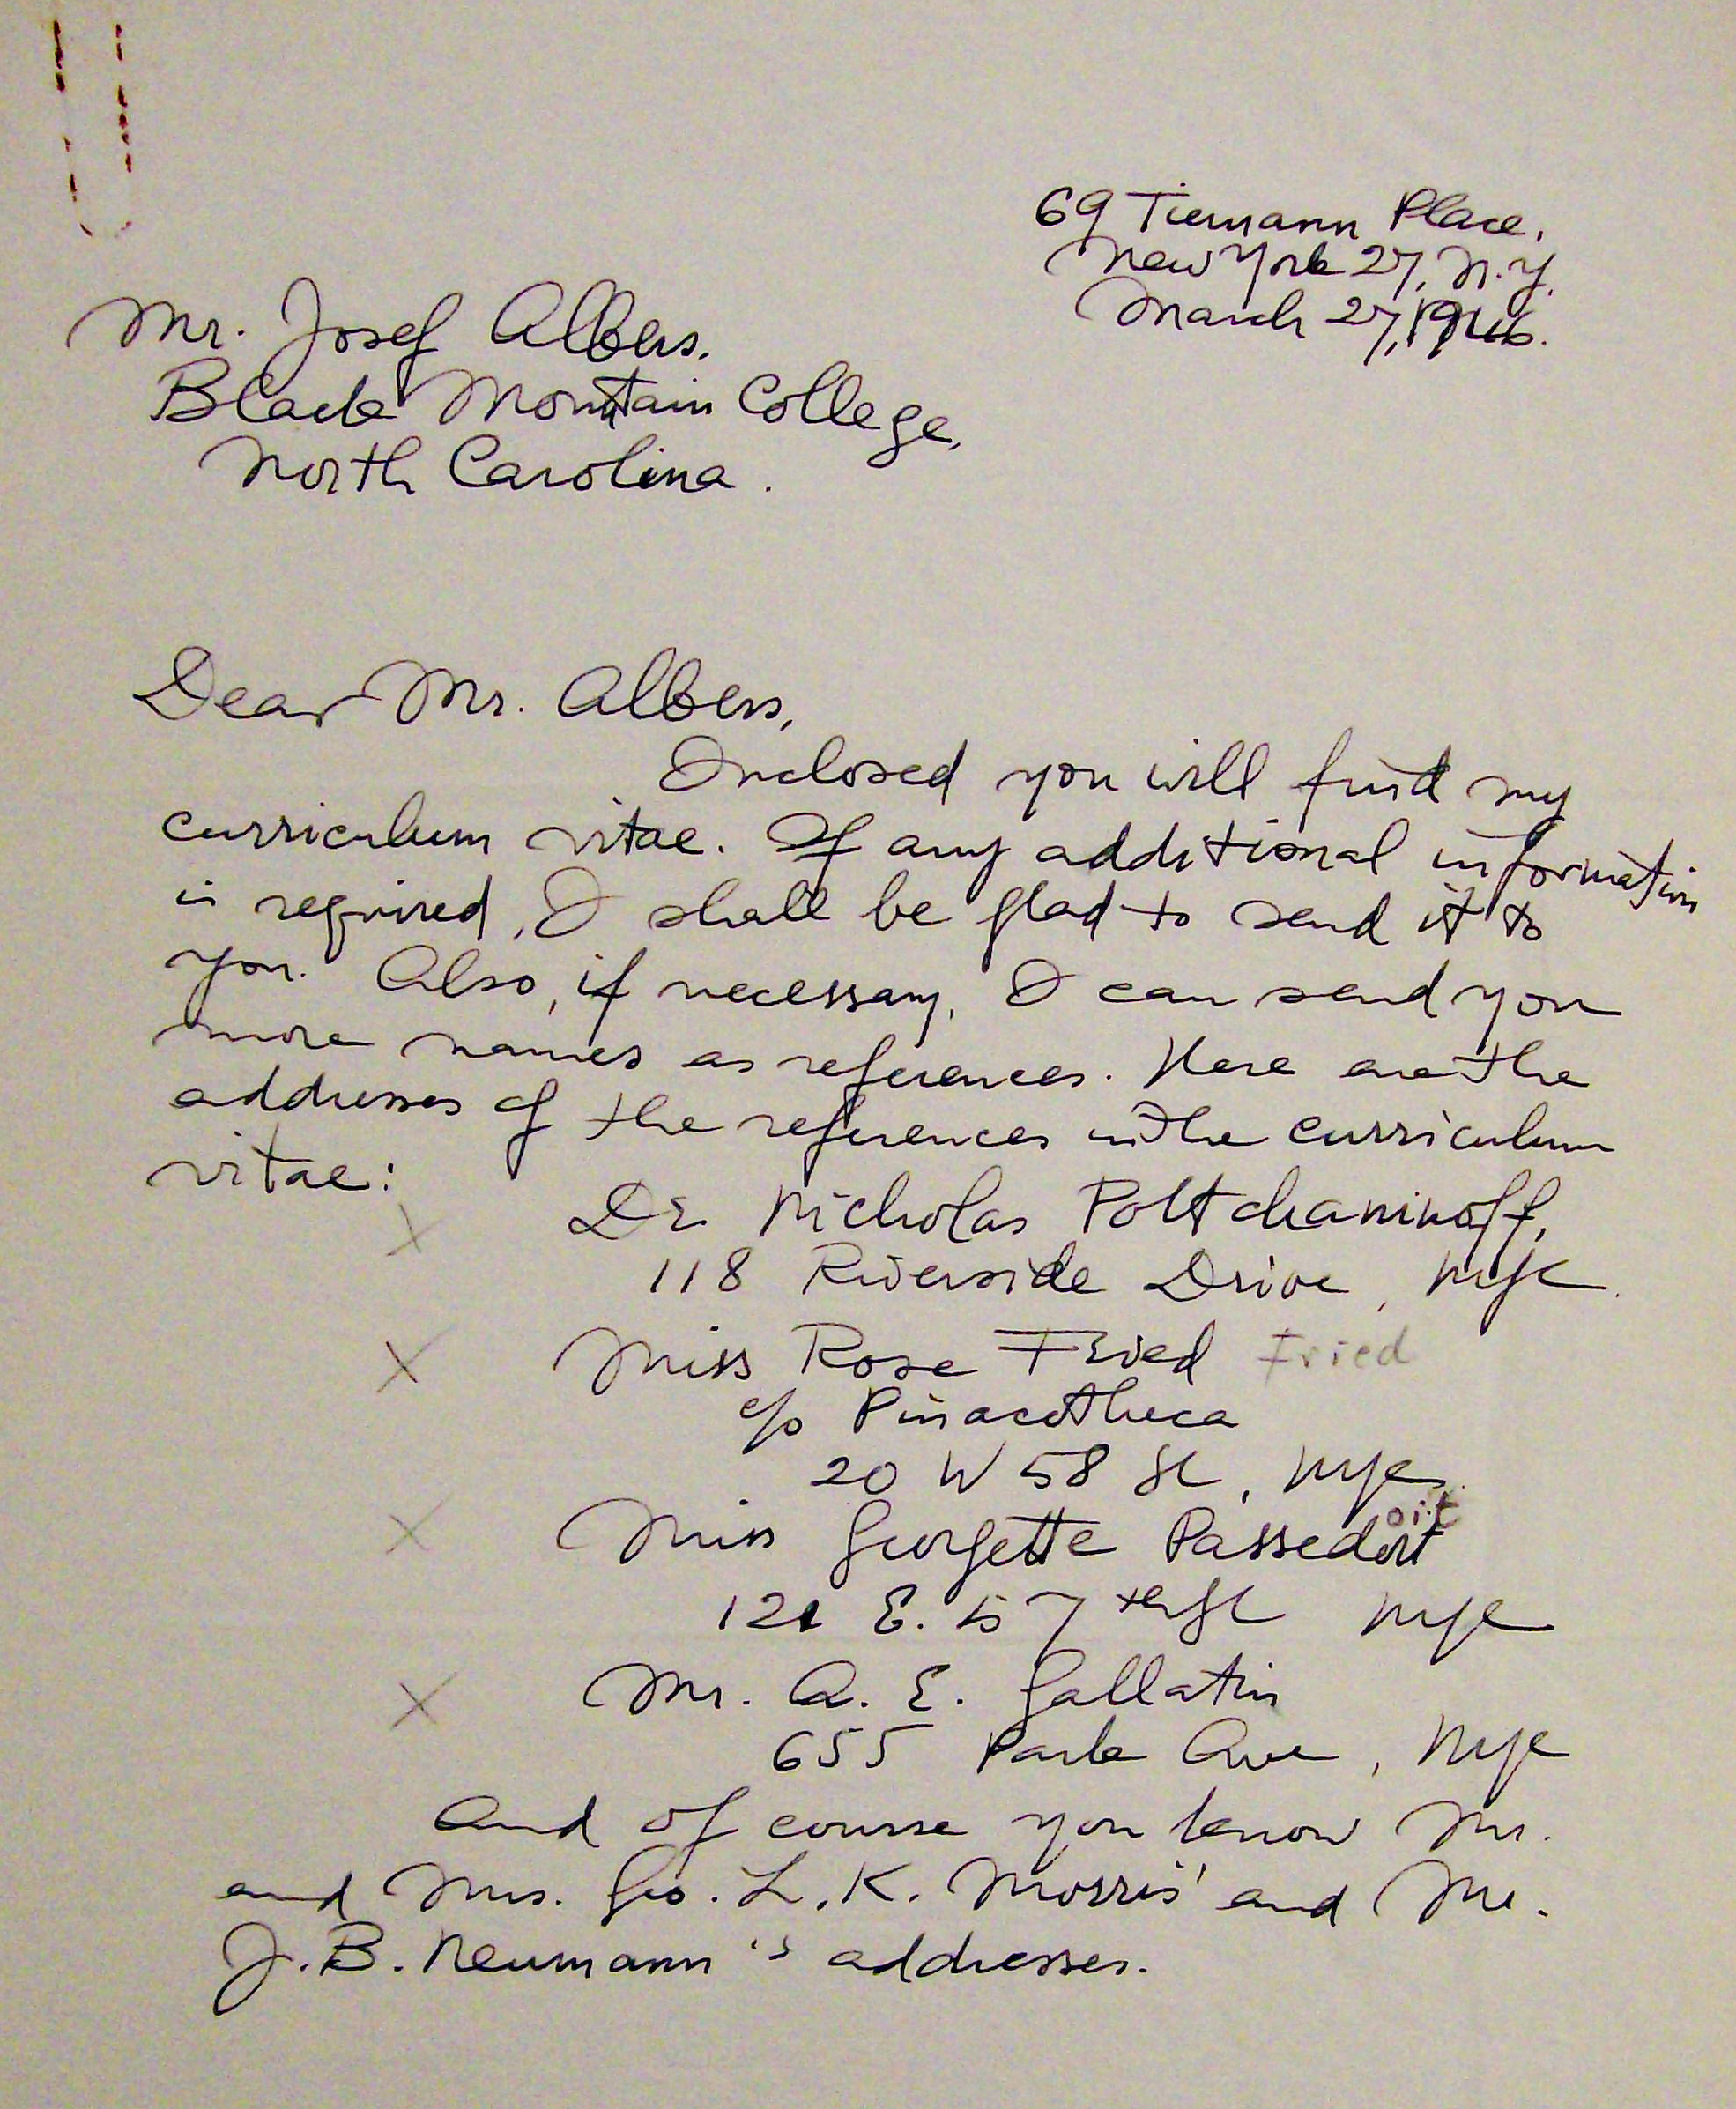 69 Tiemann Place,
New York 27, N.Y.
March 27, 1946.
Mr. Josef Albers,
Black Mountain College,
North Carolina.
Dear Mr. Albers,
Enclosed you will find my
curriculum vitae. If any additional information
is required, I shall be glad to send it to
you. Also, if necessary, I can send you
more names as references. Here are the
addresses of the references in the curriculum
vitae:
X Dr Nicholas Poltchaninoff,
118 Riverside Drive, NYC.
X Miss Rose Fried Fried
c/o Pinacotheca
20 W 58 St, NYC.
ort
X Miss Georgette Passedoit
121 E. 57th St NYC
X Mr. A. E. Gallatin
655 Park Ave, NYC
And of course you know Mr.
and Mrs. Geo. L. K. Morris' and Mr.
J. B. Neumann's addresses.